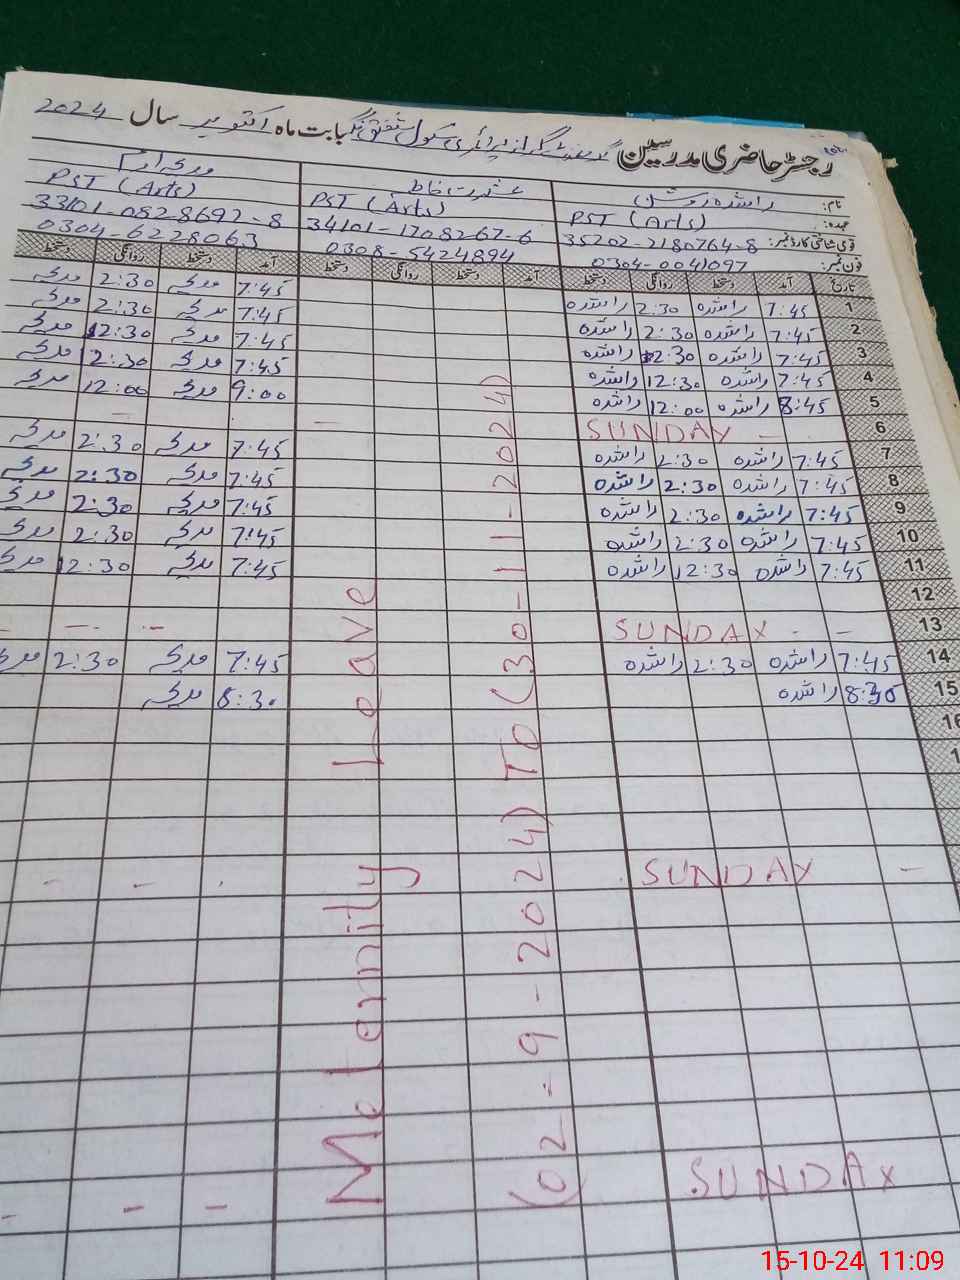 رجسٹر حاضری مدرسین گورنمنٹ گرلز پرائمری سکول شفیق بابت ماہ اکتوبر سال 2024
نام: راشدہ عشرت
عہدہ: PST (Arts) PST (Arts) PST (Arts)
قومی شناختی کارڈ نمبر: 35202-2180764-8 34101-1708267-6 33101-0828697-8
فون نمبر: 0304-0041097 0308-5424894 0304-6228063
تاریخ آمد دستخط روانگی دستخط آمد دستخط روانگی دستخط آمد دستخط روانگی دستخط
1 7:45 راشدہ 2:30 راشدہ 7:45 2:30
2 7:45 راشدہ 2:30 راشدہ 7:45 2:30
3 7:45 راشدہ 2:30 راشدہ 7:45 12:30
4 7:45 راشدہ 12:30 راشدہ 7:45 2:30
5 8:45 راشدہ 12:00 راشدہ 9:00 12:00
6 SUNDAY
7 7:45 راشدہ 2:30 راشدہ 7:45 2:30
8 7:45 راشدہ 2:30 راشدہ 7:45 2:30
9 7:45 راشدہ 2:30 راشدہ 7:45 2:30
10 7:45 راشدہ 2:30 راشدہ 7:45 2:30
11 7:45 راشدہ 12:30 راشدہ 7:45 12:30
12
13 SUNDAY
14 7:45 راشدہ 2:30 راشدہ 7:45 2:30
15 8:30 راشدہ 8:30
16
SUNDAY
SUNDAY
Meternity Leave
(02-9-2024) TO (30-11-2024)
15-10-24 11:09